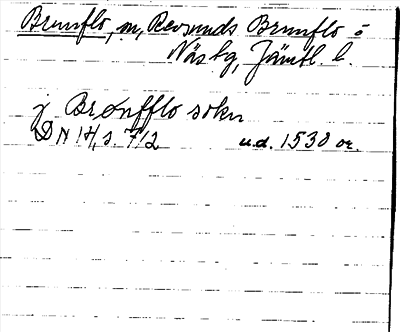 Brunflo, sn, Revsunds Brunflo o
Näs tg, Jämtl. l.
j Brønfflo sokn
DN 14, s. 712 u.d. 1530 or.